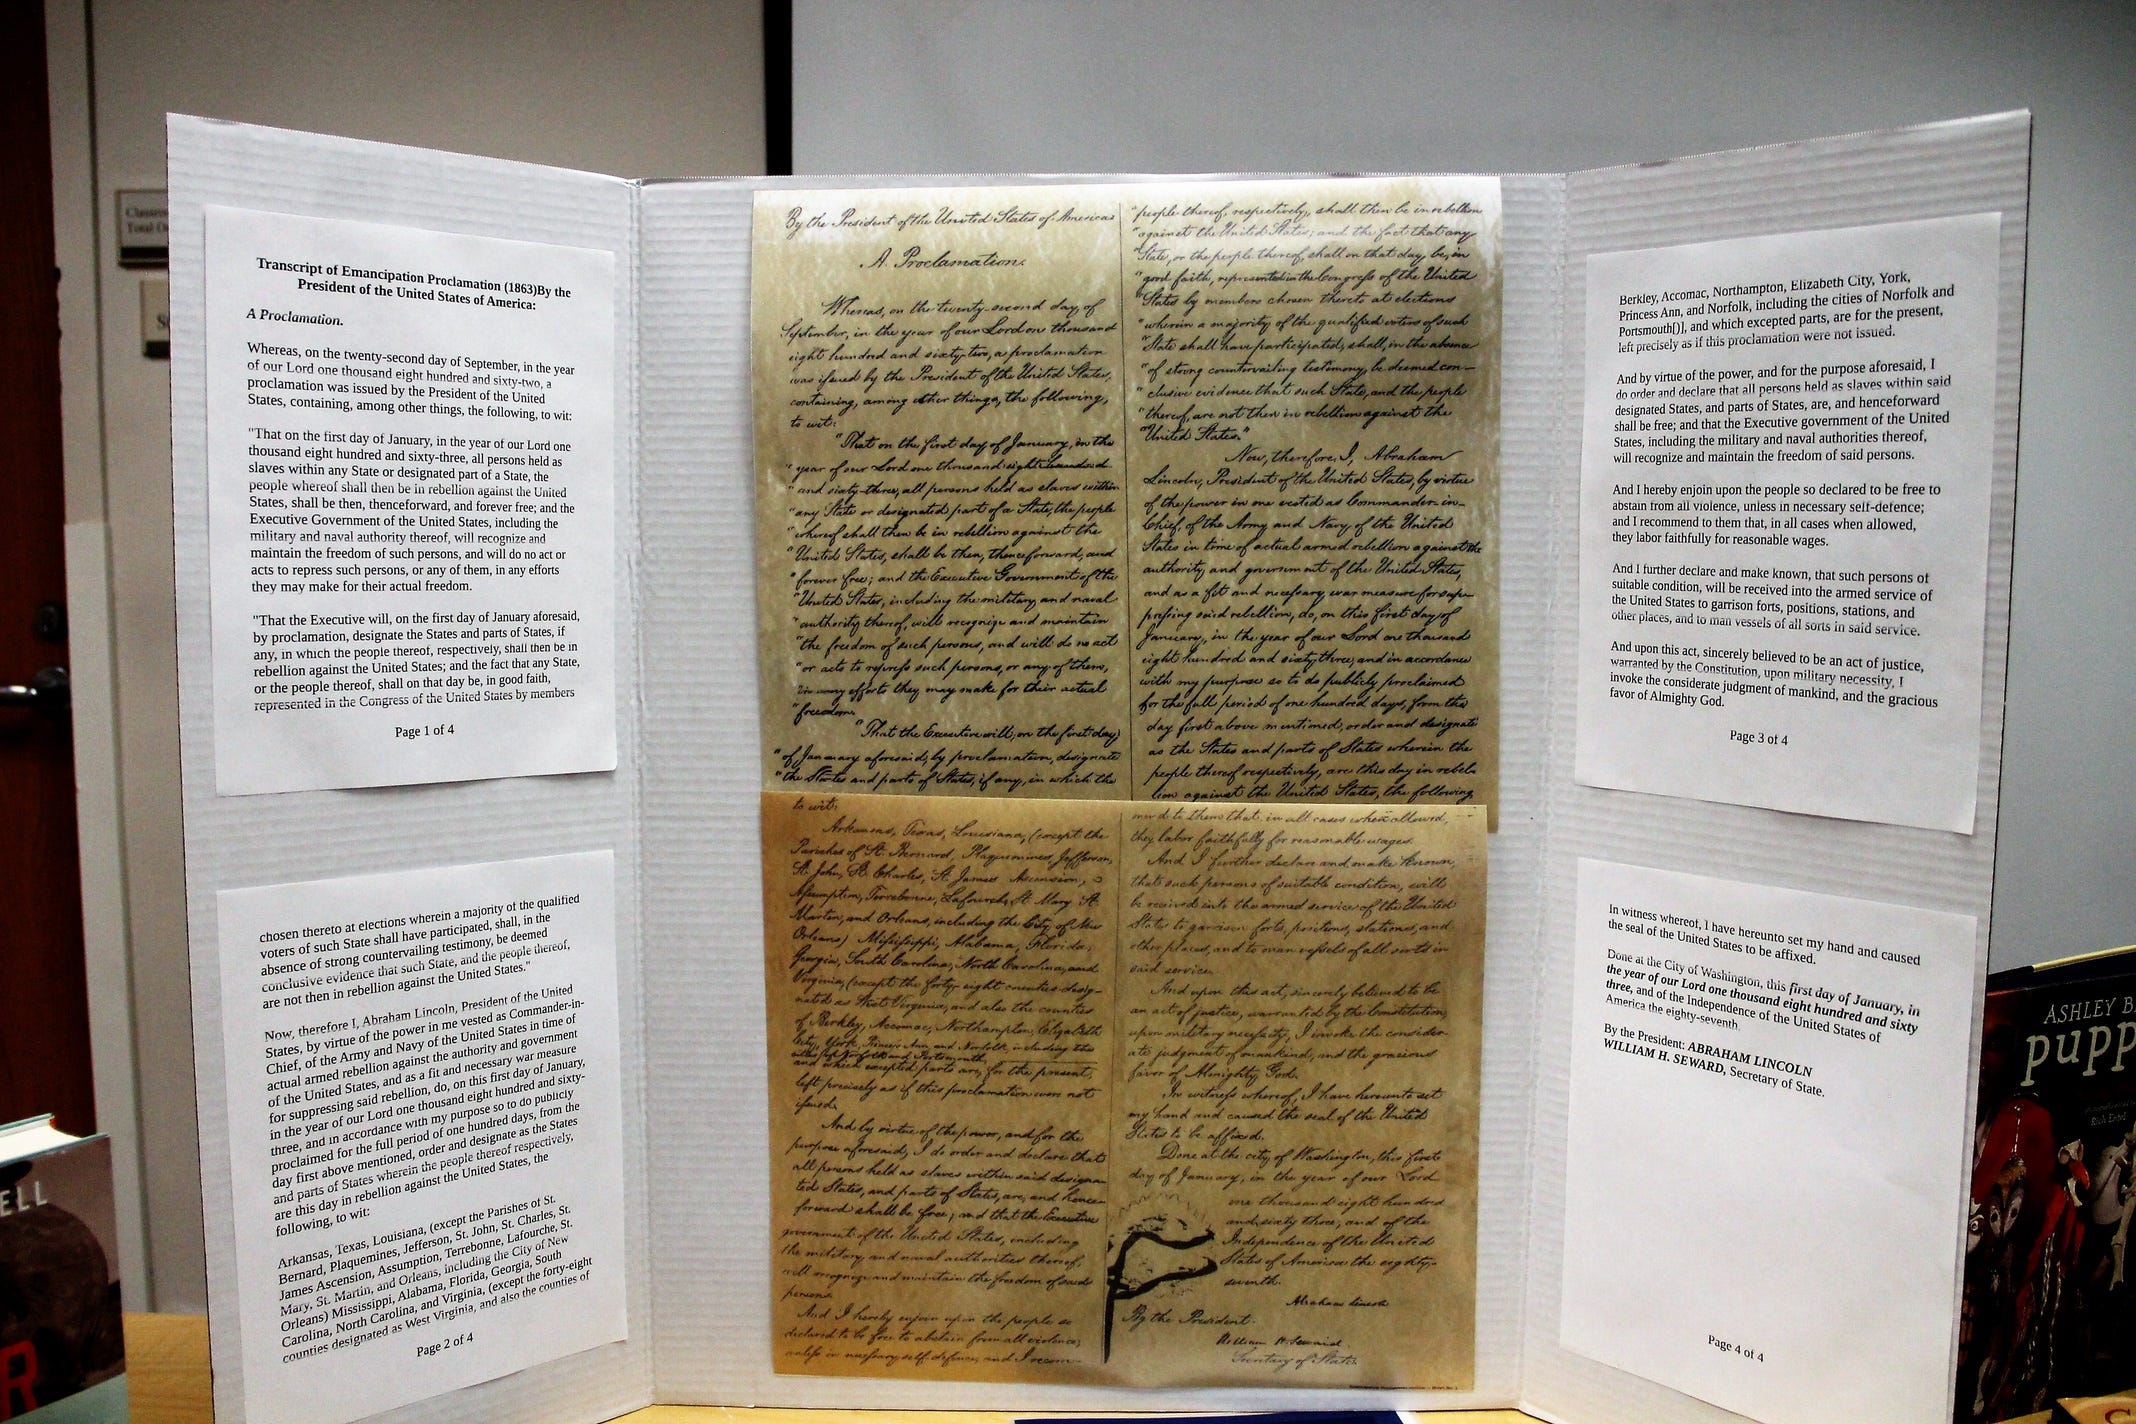 Transcript of Emancipation Proclamation (1863)By the
President of the United States of America:
A Proclamation.
Whereas, on the twenty-second day of September, in the year
of our Lord one thousand eight hundred and sixty-two, a
proclamation was issued by the President of the United
States, containing, among other things, the following, to wit:
"That on the first day of January, in the year of our Lord one
thousand eight hundred and sixty-three, all persons held as
slaves within any State or designated part of a State, the
people whereof shall then be in rebellion against the United
States, shall be then, thenceforward, and forever free; and the
Executive Government of the United States, including the
military and naval authority thereof, will recognize and
maintain the freedom of such persons, and will do no act or
acts to repress such persons, or any of them, in any efforts
they may make for their actual freedom.
"That the Executive will, on the first day of January aforesaid,
by proclamation, designate the States and parts of States, if
any, in which the people thereof, respectively, shall then be in
rebellion against the United States; and the fact that any State,
or the people thereof, shall on that day be, in good faith,
represented in the Congress of the United States by members
Page 1 of 4
chosen thereto at elections wherein a majority of the qualified
voters of such State shall have participated, shall, in the
absence of strong countervailing testimony, be deemed
conclusive evidence that such State, and the people thereof,
are not then in rebellion against the United States."
Now, therefore I, Abraham Lincoln, President of the United
States, by virtue of the power in me vested as Commander-in-
Chief, of the Army and Navy of the United States in time of
actual armed rebellion against the authority and government
of the United States, and as a fit and necessary war measure
for suppressing said rebellion, do, on this first day of January,
in the year of our Lord one thousand eight hundred and sixty-
three, and in accordance with my purpose so to do publicly
proclaimed for the full period of one hundred days, from the
day first above mentioned, order and designate as the States
and parts of States wherein the people thereof respectively,
are this day in rebellion against the United States, the
following, to wit:
Arkansas, Texas, Louisiana, (except the Parishes of St.
Bernard, Plaquemines, Jefferson, St. John, St. Charles, St.
James Ascension, Assumption, Terrebonne, Lafourche, St.
Mary, St. Martin, and Orleans, including the City of New
Orleans) Mississippi, Alabama, Florida, Georgia, South
Carolina, North Carolina, and Virginia, (except the forty-eight
counties designated as West Virginia, and also the counties of
Page 2 of 4
By the President of the United States of America:
A Proclamation.
Whereas, on the twenty-second day of
September, in the year of our Lord one thousand
eight hundred and sixty-two, a proclamation
was issued by the President of the United States,
containing, among other things, the following,
to wit:
"That on the first day of January, in the
"year of our Lord one thousand eight hundred
"and sixty-three, all persons held as slaves within
"any State or designated part of a State, the people
"whereof shall then be in rebellion against the
"United States, shall be then, thenceforward, and
"forever free; and the Executive Government of the
"United States, including the military and naval
"authority thereof, will recognize and maintain
"the freedom of such persons, and will do no act
"or acts to repress such persons, or any of them,
"in any efforts they may make for their actual
"freedom.
"That the Executive will, on the first day
"of January aforesaid, by proclamation, designate
"the States and parts of States, if any, in which the
"people thereof, respectively, shall then be in rebellion
"against the United States; and the fact that any
"State, or the people thereof, shall on that day be, in
"good faith, represented in the Congress of the United
"States by members chosen thereto at elections
"wherein a majority of the qualified voters of such
"State shall have participated, shall, in the absence
"of strong countervailing testimony, be deemed con-
"clusive evidence that such State, and the people
"thereof, are not then in rebellion against the
"United States."
Now, therefore, I, Abraham
Lincoln, President of the United States, by virtue
of the power in me vested as Commander-in-
Chief, of the Army and Navy of the United
States in time of actual armed rebellion against the
authority and government of the United States,
and as a fit and necessary war measure for sup-
pressing said rebellion, do, on this first day of
January, in the year of our Lord one thousand
eight hundred and sixty three, and in accordance
with my purpose so to do publicly proclaimed
for the full period of one hundred days, from the
day first above mentioned, order and designate
as the States and parts of States wherein the
people thereof respectively, are this day in rebel-
lion against the United States, the following
to wit:
Arkansas, Texas, Louisiana, (except the
Parishes of St. Bernard, Plaquemines, Jefferson,
St. John, St. Charles, St. James Ascension,
Assumption, Terrebonne, Lafourche, St. Mary, St.
Martin, and Orleans, including the City of New
Orleans) Mississippi, Alabama, Florida,
Georgia, South Carolina, North Carolina, and
Virginia, (except the forty-eight counties desig-
nated as West Virginia, and also the counties
of Berkley, Accomac, Northampton, Elizabeth
City, York, Princess Ann, and Norfolk, including the
cities of Norfolk and Portsmouth,
and which excepted parts are, for the present,
left precisely as if this proclamation were not
issued.
And by virtue of the power, and for the
purpose aforesaid, I do order and declare that
all persons held as slaves within said designa-
ted States, and parts of States, are, and hence-
forward shall be free; and that the Executive
government of the United States, including
the military and naval authorities thereof,
will recognize and maintain the freedom of said
persons.
And I hereby enjoin upon the people so
declared to be free to abstain from all violence,
unless in necessary self-defence; and I recom-
mend to them that in all cases when allowed,
they labor faithfully for reasonable wages.
And I further declare and make known,
that such persons of suitable condition, will
be received into the armed service of the United
States to garrison forts, positions, stations, and
other places, and to man vessels of all sorts in
said service.
And upon this act, sincerely believed to be
an act of justice, warranted by the Constitution,
upon military necessity, I invoke the consider-
ate judgment of mankind, and the gracious
favor of Almighty God.
In witness whereof, I have hereunto set
my hand and caused the seal of the United
States to be affixed.
Done at the city of Washington, this first
day of January, in the year of our Lord
one thousand eight hundred
and sixty three, and of the
Independence of the United
States of America the eighty-
seventh.
Abraham Lincoln
By the President:
William H. Seward
Secretary of State.
Berkley, Accomac, Northampton, Elizabeth City, York,
Princess Ann, and Norfolk, including the cities of Norfolk and
Portsmouth[)], and which excepted parts, are for the present,
left precisely as if this proclamation were not issued.
And by virtue of the power, and for the purpose aforesaid, I
do order and declare that all persons held as slaves within said
designated States, and parts of States, are, and henceforward
shall be free; and that the Executive government of the United
States, including the military and naval authorities thereof,
will recognize and maintain the freedom of said persons.
And I hereby enjoin upon the people so declared to be free to
abstain from all violence, unless in necessary self-defence;
and I recommend to them that, in all cases when allowed,
they labor faithfully for reasonable wages.
And I further declare and make known, that such persons of
suitable condition, will be received into the armed service of
the United States to garrison forts, positions, stations, and
other places, and to man vessels of all sorts in said service.
And upon this act, sincerely believed to be an act of justice,
warranted by the Constitution, upon military necessity, I
invoke the considerate judgment of mankind, and the gracious
favor of Almighty God.
Page 3 of 4
In witness whereof, I have hereunto set my hand and caused
the seal of the United States to be affixed.
Done at the City of Washington, this first day of January, in
the year of our Lord one thousand eight hundred and sixty
three, and of the Independence of the United States of
America the eighty-seventh.
By the President: ABRAHAM LINCOLN
WILLIAM H. SEWARD, Secretary of State.
Page 4 of 4
ASHLEY B
pupp
ELL
R